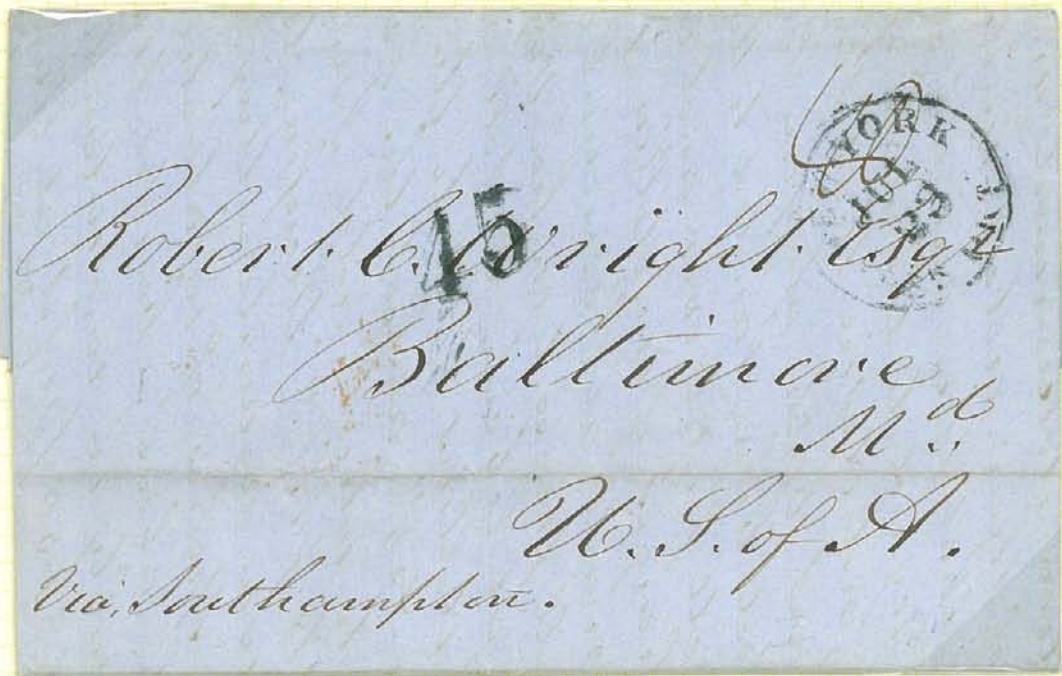 YORK
45
Robert. C. Wright. Esqr
Baltimore
Md
U. S. of A.
Via, Southampton.